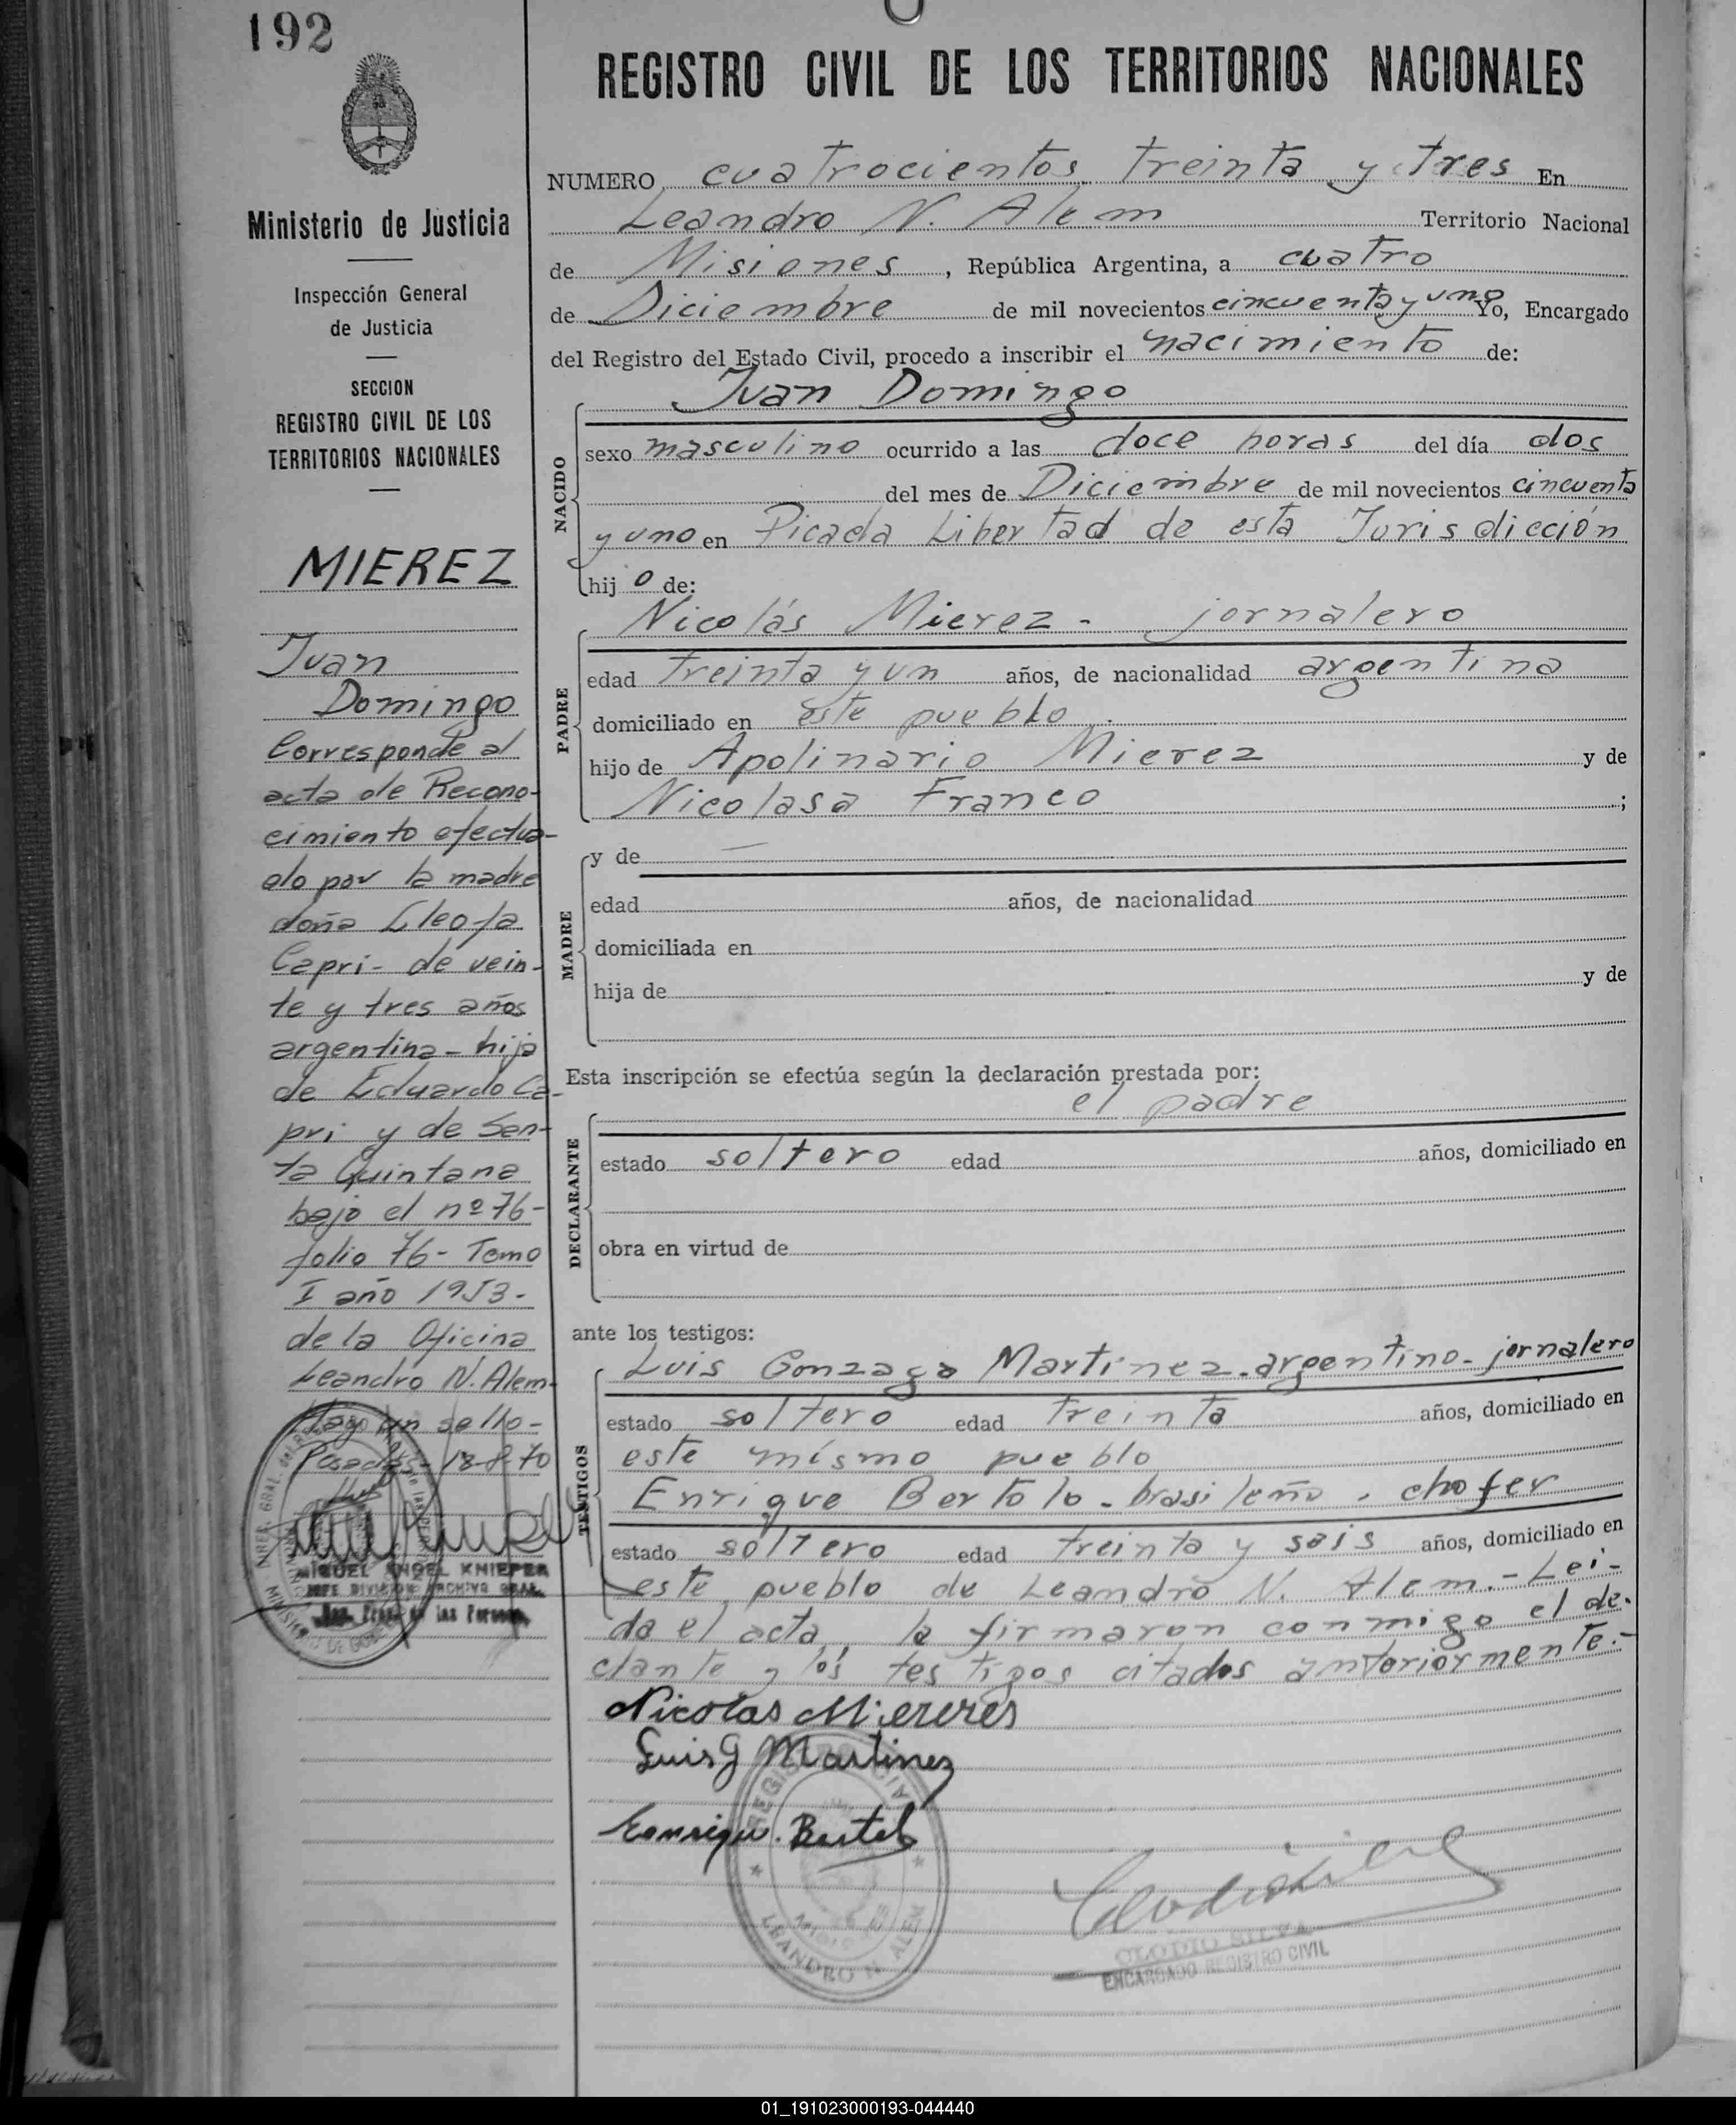 192
Ministerio de Justicia
Inspección General
de Justicia
SECCION
REGISTRO CIVIL DE LOS
TERRITORIOS NACIONALES
MIEREZ
Juan
Domingo
Corresponde al
acta de Recono-
cimiento efectua-
do por la madre
doña Cleofa
Capri - de vein-
te y tres años
argentina - hija
de Eduardo Ca-
pri y de Sen-
ta Quintana
bajo el nº 76-
folio 76 - Tomo
I año 1953 -
de la Oficina
Leandro N. Alem-
Hago un sello -
Posadas - 18-8-70
MIGUEL ANGEL KNIEPER
JEFE DIVISION ARCHIVO GRAL.
de las Personas
REGISTRO CIVIL DE LOS TERRITORIOS NACIONALES
NUMERO cuatrocientos treinta y tres En
Leandro N. Alem Territorio Nacional
de Misiones, República Argentina, a cuatro
de Diciembre de mil novecientos cincuenta y uno Yo, Encargado
del Registro del Estado Civil, procedo a inscribir el nacimiento de:
Juan Domingo
NACIDO
sexo masculino ocurrido a las doce horas del día dos
del mes de Diciembre de mil novecientos cincuenta
y uno en Picada Libertad de esta Jurisdicción
hijo de:
PADRE
Nicolás Mierez - jornalero
edad treinta y un años, de nacionalidad argentina
domiciliado en este pueblo
hijo de Apolinario Mierez y de
Nicolasa Franco ;
MADRE
y de —
edad años, de nacionalidad
domiciliada en
hija de y de
Esta inscripción se efectúa según la declaración prestada por:
DECLARANTE
el padre
estado soltero edad años, domiciliado en
obra en virtud de
ante los testigos:
TESTIGOS
Luis Gonzaga Martinez - argentino - jornalero
estado soltero edad treinta años, domiciliado en
este mismo pueblo
Enrique Bertolo - brasileño - chofer
estado soltero edad treinta y seis años, domiciliado en
este pueblo de Leandro N. Alem.- Lei-
da el acta, la firmaron conmigo el de-
clante y los testigos citados anteriormente.-
Nicolas Miereres
Luis G Martinez
Enrique Bertol
REGISTRO CIVIL
LEANDRO N. ALEM
CLODIO SILVA
ENCARGADO REGISTRO CIVIL
01_191023000193-044440